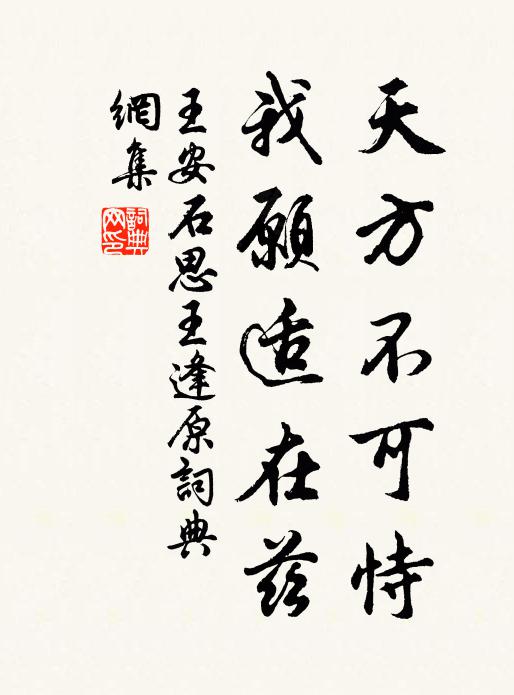 天方不可恃
我願适在兹
王安石思王逢原詞典
網集
詞典网印